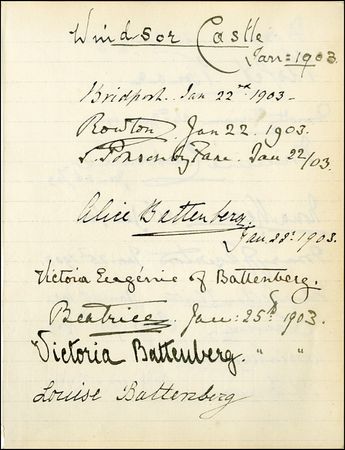 Windsor Castle
Jan: 1903.
Bridport. Jan 22nd 1903.
Rowton. Jan 22. 1903.
S. Ponsonby Fane. Jan 22/03.
Alice Battenberg
Jan 22d. 1903.
Victoria Eugénie of Battenberg.
Beatrice. Jan: 25th 1903.
Victoria Battenberg. " "
Louise Battenberg